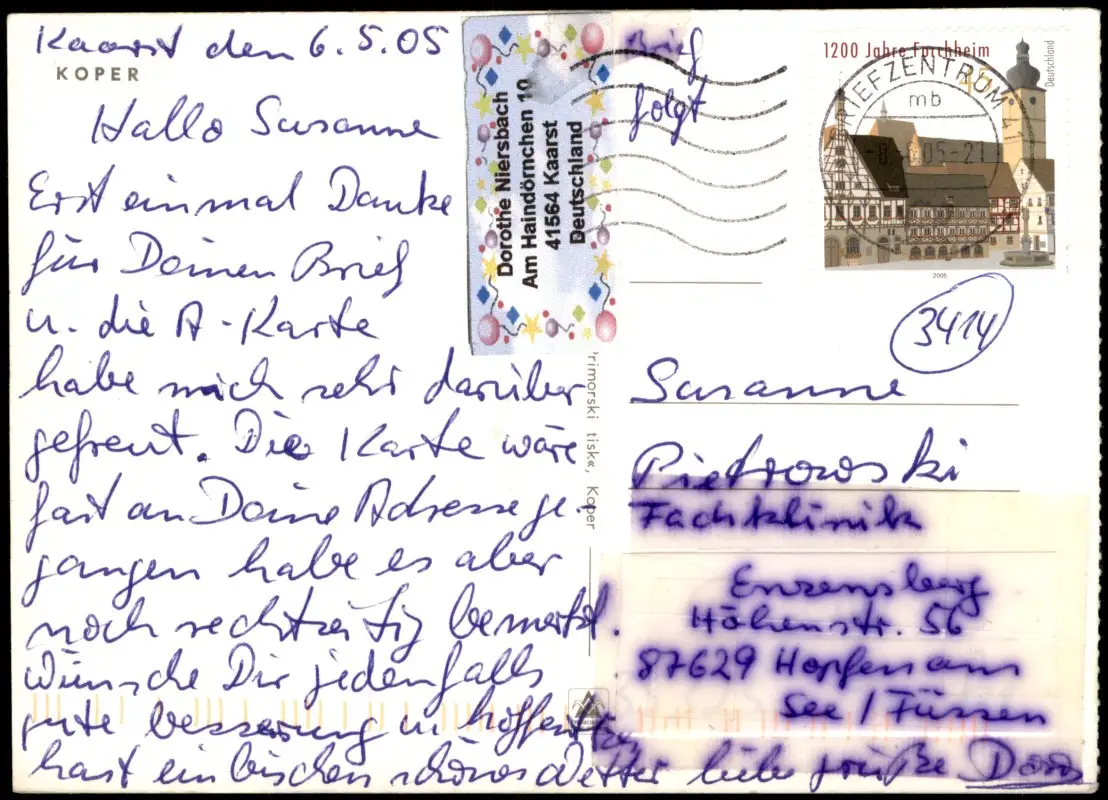 Kaarst den 6.5.05
KOPER
Hallo Susanne
Erst einmal Danke
für Deinen Brief
u. die A-Karte
habe mich sehr darüber
gefreut. Die Karte wäre
fast an Deine Adresse ge-
gangen habe es aber
noch rechtzeitig bemerkt.
Wünsche Dir jedenfalls
gute besserung u. hoffentlich
hast ein bischen schönes Wetter liebe grüße Doro
Dorothe Niersbach
Am Haindörnchen 10
41564 Kaarst
Deutschland
Brief
folgt
1200 Jahre Forchheim
Deutschland
BRIEFZENTRUM
mb
05-21
2005
3414
rimorski tisk, Koper
Susanne
Pietrowski
Fachklinik
Enzensberg
Höhenstr. 56
87629 Hopfen am
See / Füssen